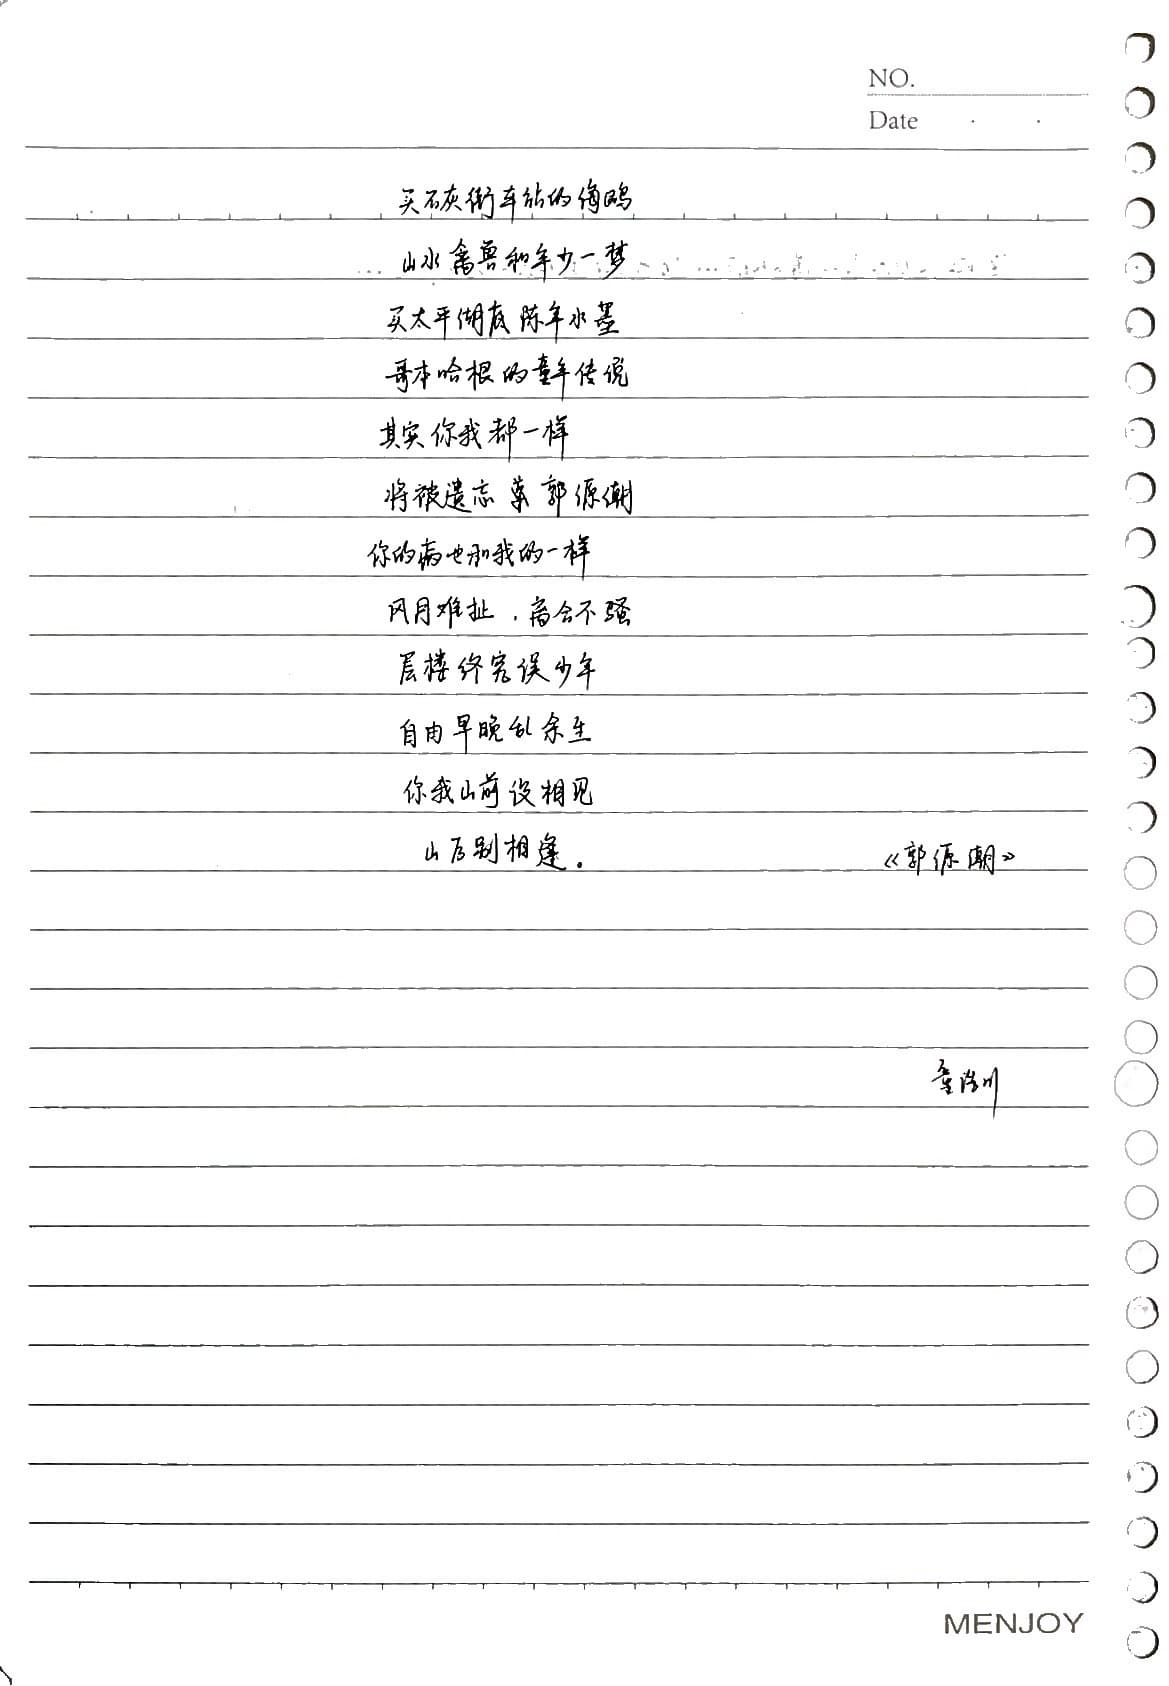 NO.
Date
买石灰街车站的海鸥
山水禽兽和年少一梦
买太平湖底陈年水墨
哥本哈根的童年传说
其实你我都一样
将被遗忘 郭源潮
你的病也和我的一样
风月难扯，离合不骚
层楼终究误少年
自由早晚乱余生
你我山前没相见
山后别相逢。
《郭源潮》
MENJOY